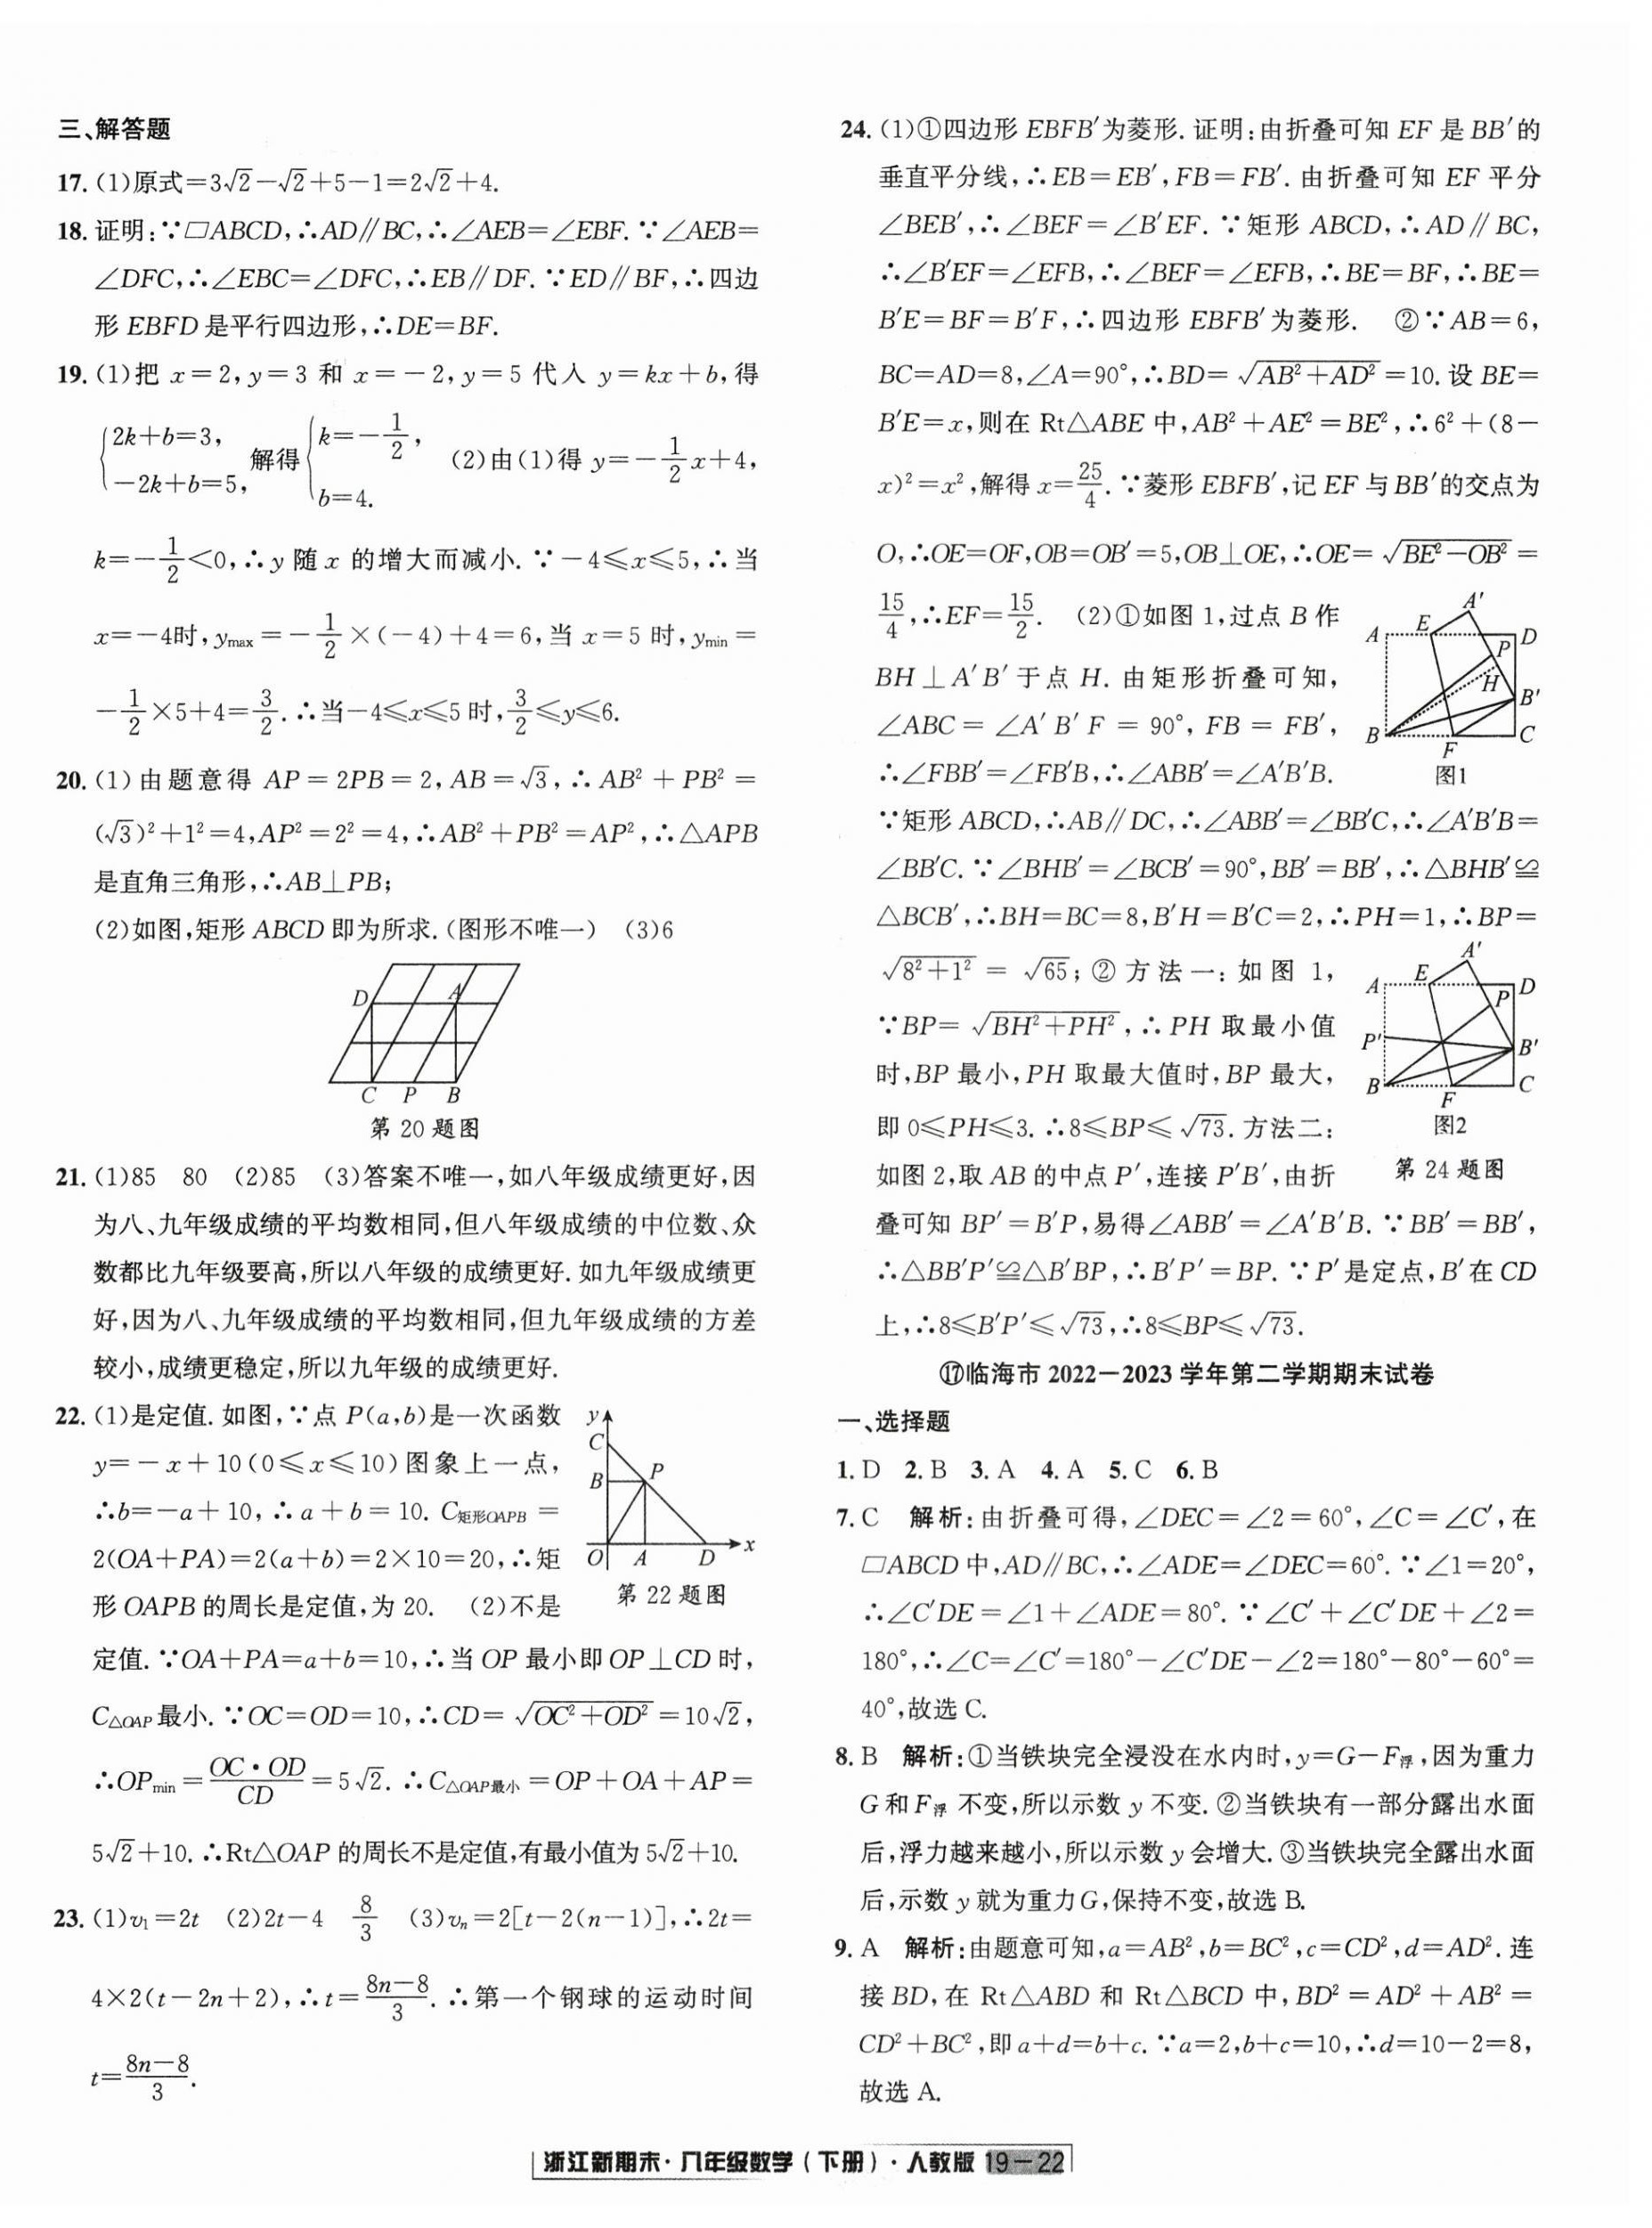 三、解答题
17. (1)原式=3√2−√2+5−1=2√2+4.
18. 证明:∵▱ABCD,∴AD∥BC,∴∠AEB=∠EBF. ∵∠AEB=
∠DFC,∴∠EBC=∠DFC,∴EB∥DF. ∵ED∥BF,∴四边
形 EBFD 是平行四边形,∴DE=BF.
19. (1)把 x=2,y=3 和 x=−2,y=5 代入 y=kx+b,得
{2k+b=3, −2k+b=5, 解得{k=−1/2, b=4. (2)由(1)得 y=−1/2x+4,
k=−1/2<0,∴y 随 x 的增大而减小. ∵−4≤x≤5,∴当
x=−4时,y_max=−1/2×(−4)+4=6,当 x=5 时,y_min=
−1/2×5+4=3/2. ∴当−4≤x≤5 时,3/2≤y≤6.
20. (1)由题意得 AP=2PB=2,AB=√3,∴AB²+PB²=
(√3)²+1²=4,AP²=2²=4,∴AB²+PB²=AP²,∴△APB
是直角三角形,∴AB⊥PB;
(2)如图,矩形 ABCD 即为所求.(图形不唯一) (3)6
D A
C P B
第 20 题图
21. (1)85 80 (2)85 (3)答案不唯一,如八年级成绩更好,因
为八、九年级成绩的平均数相同,但八年级成绩的中位数、众
数都比九年级要高,所以八年级的成绩更好. 如九年级成绩更
好,因为八、九年级成绩的平均数相同,但九年级成绩的方差
较小,成绩更稳定,所以九年级的成绩更好.
22. (1)是定值. 如图,∵点 P(a,b)是一次函数
y=−x+10(0≤x≤10)图象上一点,
∴b=−a+10,∴a+b=10. C矩形OAPB=
2(OA+PA)=2(a+b)=2×10=20,∴矩
形 OAPB 的周长是定值,为 20. (2)不是
y
C
B P
O A D x
第 22 题图
定值. ∵OA+PA=a+b=10,∴当 OP 最小即 OP⊥CD 时,
C△OAP最小. ∵OC=OD=10,∴CD=√(OC²+OD²)=10√2,
∴OP_min=OC·OD/CD=5√2. ∴C△OAP最小=OP+OA+AP=
5√2+10. ∴Rt△OAP 的周长不是定值,有最小值为 5√2+10.
23. (1)v₁=2t (2)2t−4 8/3 (3)vₙ=2[t−2(n−1)],∴2t=
4×2(t−2n+2),∴t=(8n−8)/3. ∴第一个钢球的运动时间
t=(8n−8)/3.
24. (1)①四边形 EBFB′为菱形. 证明:由折叠可知 EF 是 BB′的
垂直平分线,∴EB=EB′,FB=FB′. 由折叠可知 EF 平分
∠BEB′,∴∠BEF=∠B′EF. ∵矩形 ABCD,∴AD∥BC,
∴∠B′EF=∠EFB,∴∠BEF=∠EFB,∴BE=BF,∴BE=
B′E=BF=B′F,∴四边形 EBFB′为菱形. ②∵AB=6,
BC=AD=8,∠A=90°,∴BD=√(AB²+AD²)=10. 设 BE=
B′E=x,则在 Rt△ABE 中,AB²+AE²=BE²,∴6²+(8−
x)²=x²,解得 x=25/4. ∵菱形 EBFB′,记 EF 与 BB′的交点为
O,∴OE=OF,OB=OB′=5,OB⊥OE,∴OE=√(BE²−OB²)=
15/4,∴EF=15/2. (2)①如图 1,过点 B 作
BH⊥A′B′于点 H. 由矩形折叠可知,
∠ABC=∠A′B′F=90°,FB=FB′,
∴∠FBB′=∠FB′B,∴∠ABB′=∠A′B′B.
A E A′ D
P
H
B′
B F C
图1
∵矩形 ABCD,∴AB∥DC,∴∠ABB′=∠BB′C,∴∠A′B′B=
∠BB′C. ∵∠BHB′=∠BCB′=90°,BB′=BB′,∴△BHB′≌
△BCB′,∴BH=BC=8,B′H=B′C=2,∴PH=1,∴BP=
√(8²+1²)=√65;②方法一:如图 1,
∵BP=√(BH²+PH²),∴PH 取最小值
时,BP 最小,PH 取最大值时,BP 最大,
即 0≤PH≤3. ∴8≤BP≤√73. 方法二:
如图 2,取 AB 的中点 P′,连接 P′B′,由折
A E A′ D
P
P′ B′
B F C
图2
第 24 题图
叠可知 BP′=B′P,易得∠ABB′=∠A′B′B. ∵BB′=BB′,
∴△BB′P′≌△B′BP,∴B′P′=BP. ∵P′是定点,B′在 CD
上,∴8≤B′P′≤√73,∴8≤BP≤√73.
⑰临海市 2022−2023 学年第二学期期末试卷
一、选择题
1. D 2. B 3. A 4. A 5. C 6. B
7. C 解析:由折叠可得,∠DEC=∠2=60°,∠C=∠C′,在
▱ABCD 中,AD∥BC,∴∠ADE=∠DEC=60°. ∵∠1=20°,
∴∠C′DE=∠1+∠ADE=80°. ∵∠C′+∠C′DE+∠2=
180°,∴∠C=∠C′=180°−∠C′DE−∠2=180°−80°−60°=
40°,故选 C.
8. B 解析:①当铁块完全浸没在水内时,y=G−F浮,因为重力
G 和 F浮 不变,所以示数 y 不变. ②当铁块有一部分露出水面
后,浮力越来越小,所以示数 y 会增大. ③当铁块完全露出水面
后,示数 y 就为重力 G,保持不变,故选 B.
9. A 解析:由题意可知,a=AB²,b=BC²,c=CD²,d=AD². 连
接 BD,在 Rt△ABD 和 Rt△BCD 中,BD²=AD²+AB²=
CD²+BC²,即 a+d=b+c. ∵a=2,b+c=10,∴d=10−2=8,
故选 A.
浙江新期末·八年级数学(下册)·人教版 19−22